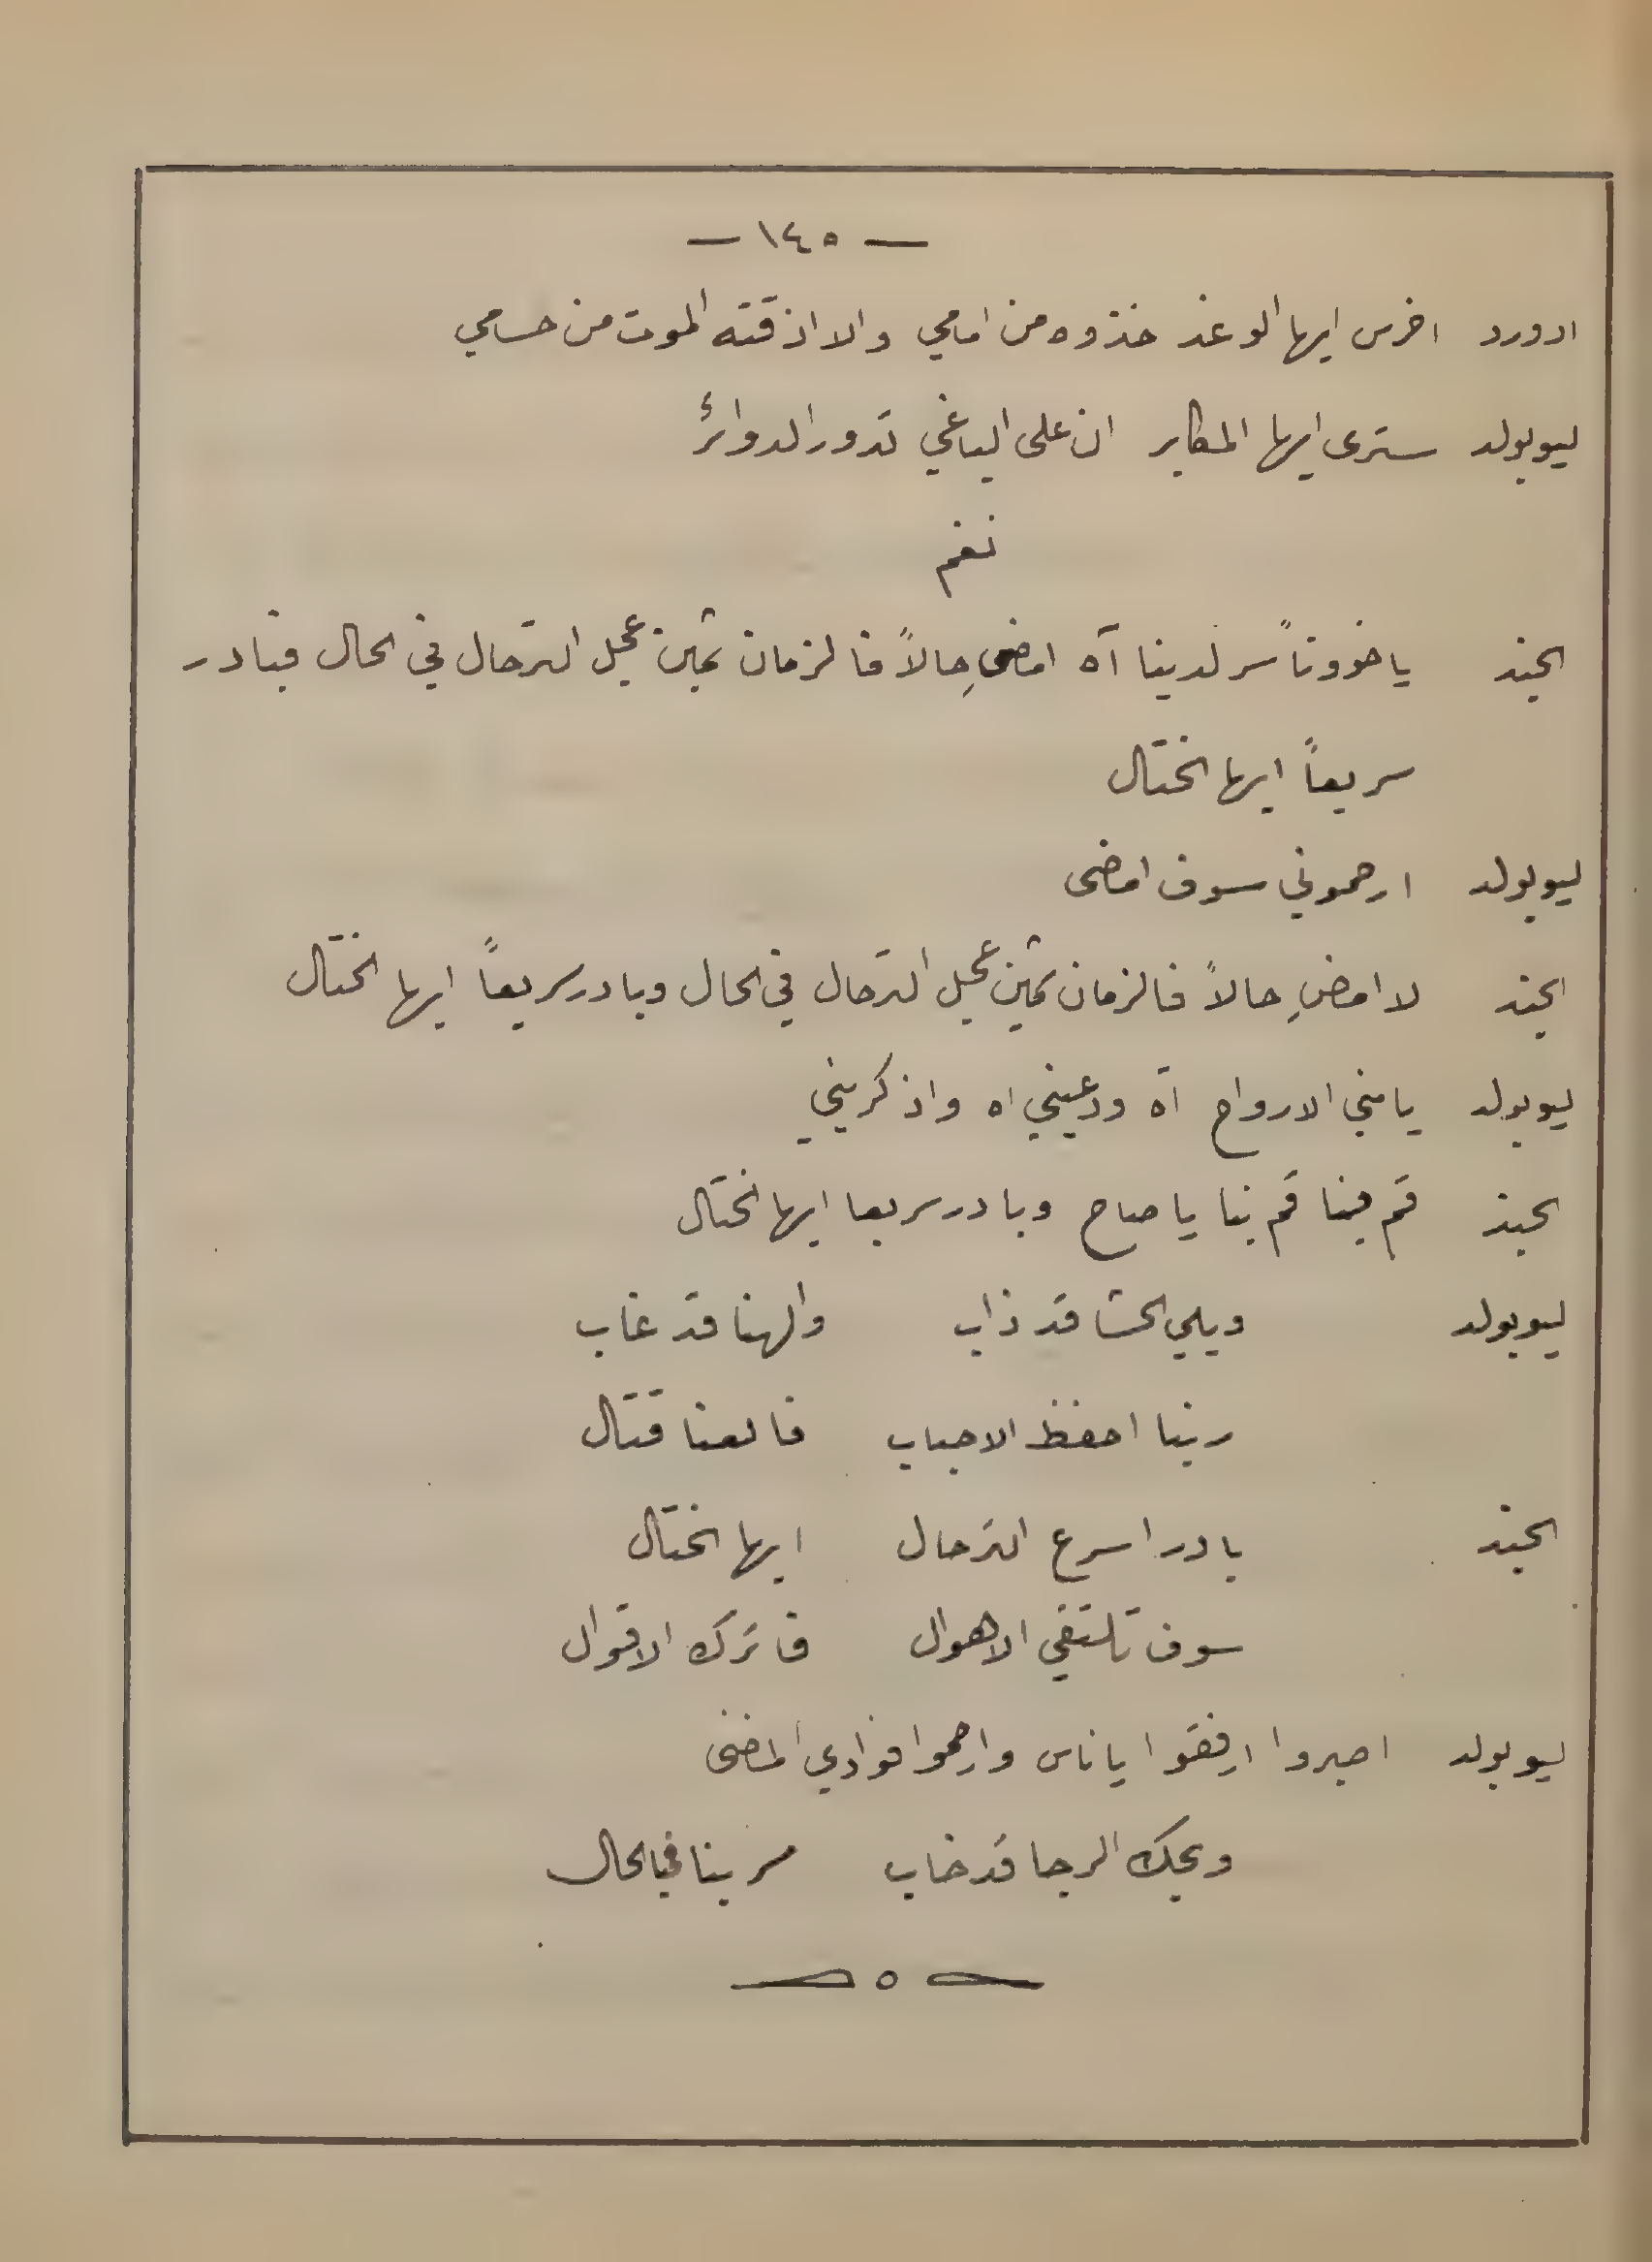 — ١٤٥ —
ادورد اخرس ايها الوغد خذوه من امامي والا اذقته الموت من حسامي
ليوبولد سترى ايها المكابر ان على الباغي تدور الدوائر
نغم
الجند يا خووناً سر لدينا آه امضِ حالاً فالزمان ثمين عجل الترحال في الحال فبادر
سريعاً ايها الختال
ليوبولد ارحموني سوف امضى
الجند لا امضِ حالاً فالزمان ثمين عجل الترحال في الحال وبادر سريعاً ايها الختال
ليوبولد يا منى الارواح آه ودعيني اه واذكريني
الجند قم بنا قم بنا يا صاح وبادر سريعا ايها الختال
ليوبولد ويلي الحشا قد ذاب والهنا قد غاب
ربنا احفظ الاحباب فالعنا قتال
الجند بادر اسرع الترحال ايها الختال
سوف تلتقي الاهوال فاترك الاقوال
ليوبولد اصبروا ارفقوا يا ناس وارحموا فوادي المضنى
ويحك الرجا قد خاب سر بنا في الحال